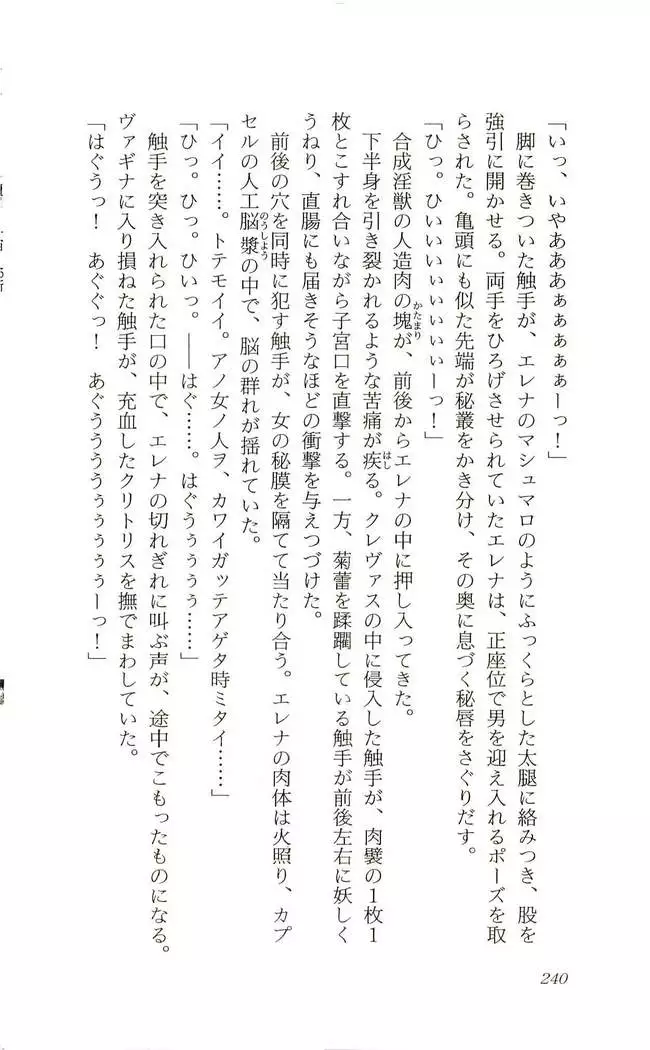 「いっ、いやあああぁぁぁぁぁーっ！」
　脚に巻きついた触手が、エレナのマシュマロのようにふっくらとした太腿に絡みつき、股を
強引に開かせる。両手をひろげさせられていたエレナは、正座位で男を迎え入れるポーズを取
らされた。亀頭にも似た先端が秘叢をかき分け、その奥に息づく秘唇をさぐりだす。
「ひっ。ひいいいぃぃぃぃぃーっ！」
　合成淫獣の人造肉の塊かたまりが、前後からエレナの中に押し入ってきた。
　下半身を引き裂かれるような苦痛が疾はしる。クレヴァスの中に侵入した触手が、肉襞の１枚１
枚とこすれ合いながら子宮口を直撃する。一方、菊蕾を蹂躙している触手が前後左右に妖しく
うねり、直腸にも届きそうなほどの衝撃を与えつづけた。
　前後の穴を同時に犯す触手が、女の秘膜を隔てて当たり合う。エレナの肉体は火照り、カプ
セルの人工脳漿のうしょうの中で、脳の群れが揺れていた。
「イイ……。トテモイイ。アノ女ノ人ヲ、カワイガッテアゲタ時ミタイ……」
「ひっ。ひっ。ひいっ。――はぐ……。はぐうぅぅぅ……」
　触手を突き入れられた口の中で、エレナの切れぎれに叫ぶ声が、途中でこもったものになる。
ヴァギナに入り損ねた触手が、充血したクリトリスを撫でまわしていた。
「はぐうっ！　あぐぐっ！　あぐうううぅぅぅぅぅーっ！」
240